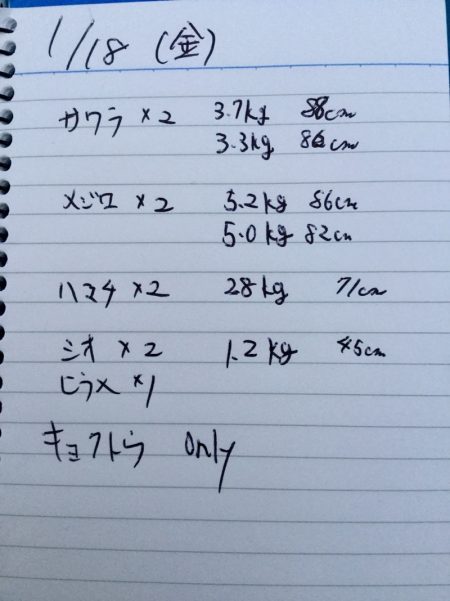 1/18 (金)
サワラ ×2 3.7kg 88cm
3.3kg 86cm
メジロ ×2 5.2kg 86cm
5.0kg 82cm
ハマチ ×2 28kg 71cm
シオ ×2 1.2kg 45cm
ヒラメ ×1
キョクトウ only